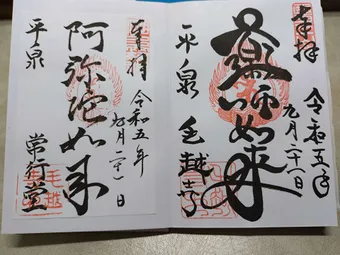 奉拝
令和五年
九月二十一日
薬師如来
平泉 毛越寺
奉拝
令和五年
九月二十一日
阿弥陀如来
平泉
常行堂
毛越